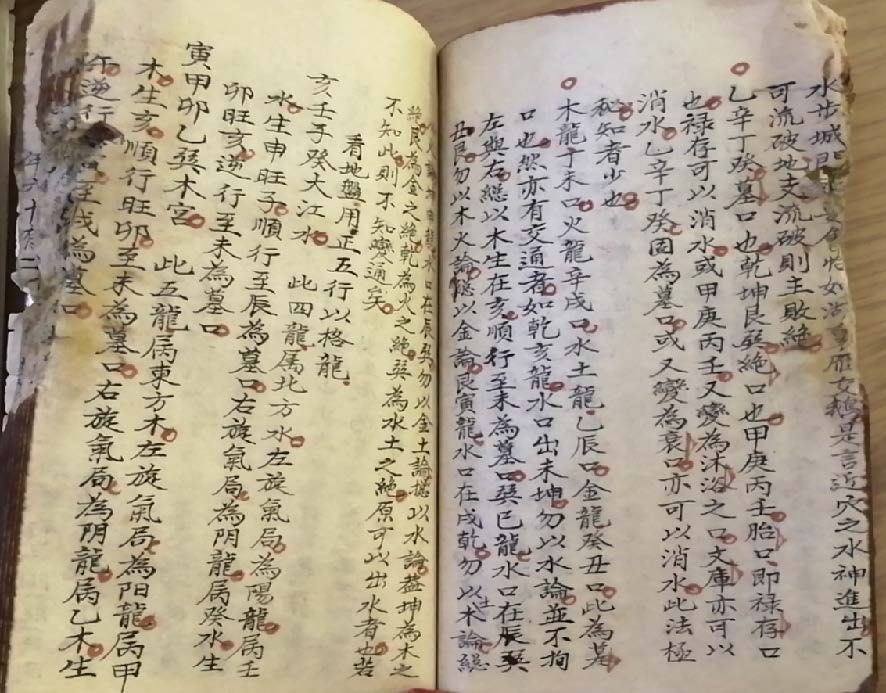 水步城門如皇雁女鵝是言近穴之水神進出不
可流破地支流破則主敗絶
乙辛丁癸墓口也乾坤艮巽絶口也甲庚丙壬胎口即禄存口
也禄存可以消水或甲庚丙壬又變為沐浴之口文庫亦可以
消水乙辛丁癸固為墓口或又變為衰口亦可以消水此法極
秘知者少也
木龍丁未口火龍辛戌口水土龍乙辰口金龍癸丑口此為墓
口也然亦有交通者如乾亥龍水口出未坤勿以水論並不拘
左與右総以木生在亥順行至未為墓口巽巳龍水口在辰巽
丑艮勿以木火論総以金論艮寅龍水口在戌乾勿以木論総
龍水口在辰巽勿以金土論総以水論蓋坤為木之
絶艮為金之絶乾為火之絶巽為水土之絶原可以出水者也若
不知此則不知變通矣
看地盤用正五行以格龍
亥壬子癸大江水 此四龍属北方水左旋氣局為陽龍属壬
水生申旺子順行至辰為墓口右旋氣局為阴龍属癸水生
卯旺亥逆行至未為墓口
寅甲卯乙巽木宮 此五龍属東方木左旋氣局為阳龍属甲
木生亥順行旺卯至未為墓口右旋氣局為阴龍属乙木生
午逆行至戌為墓口